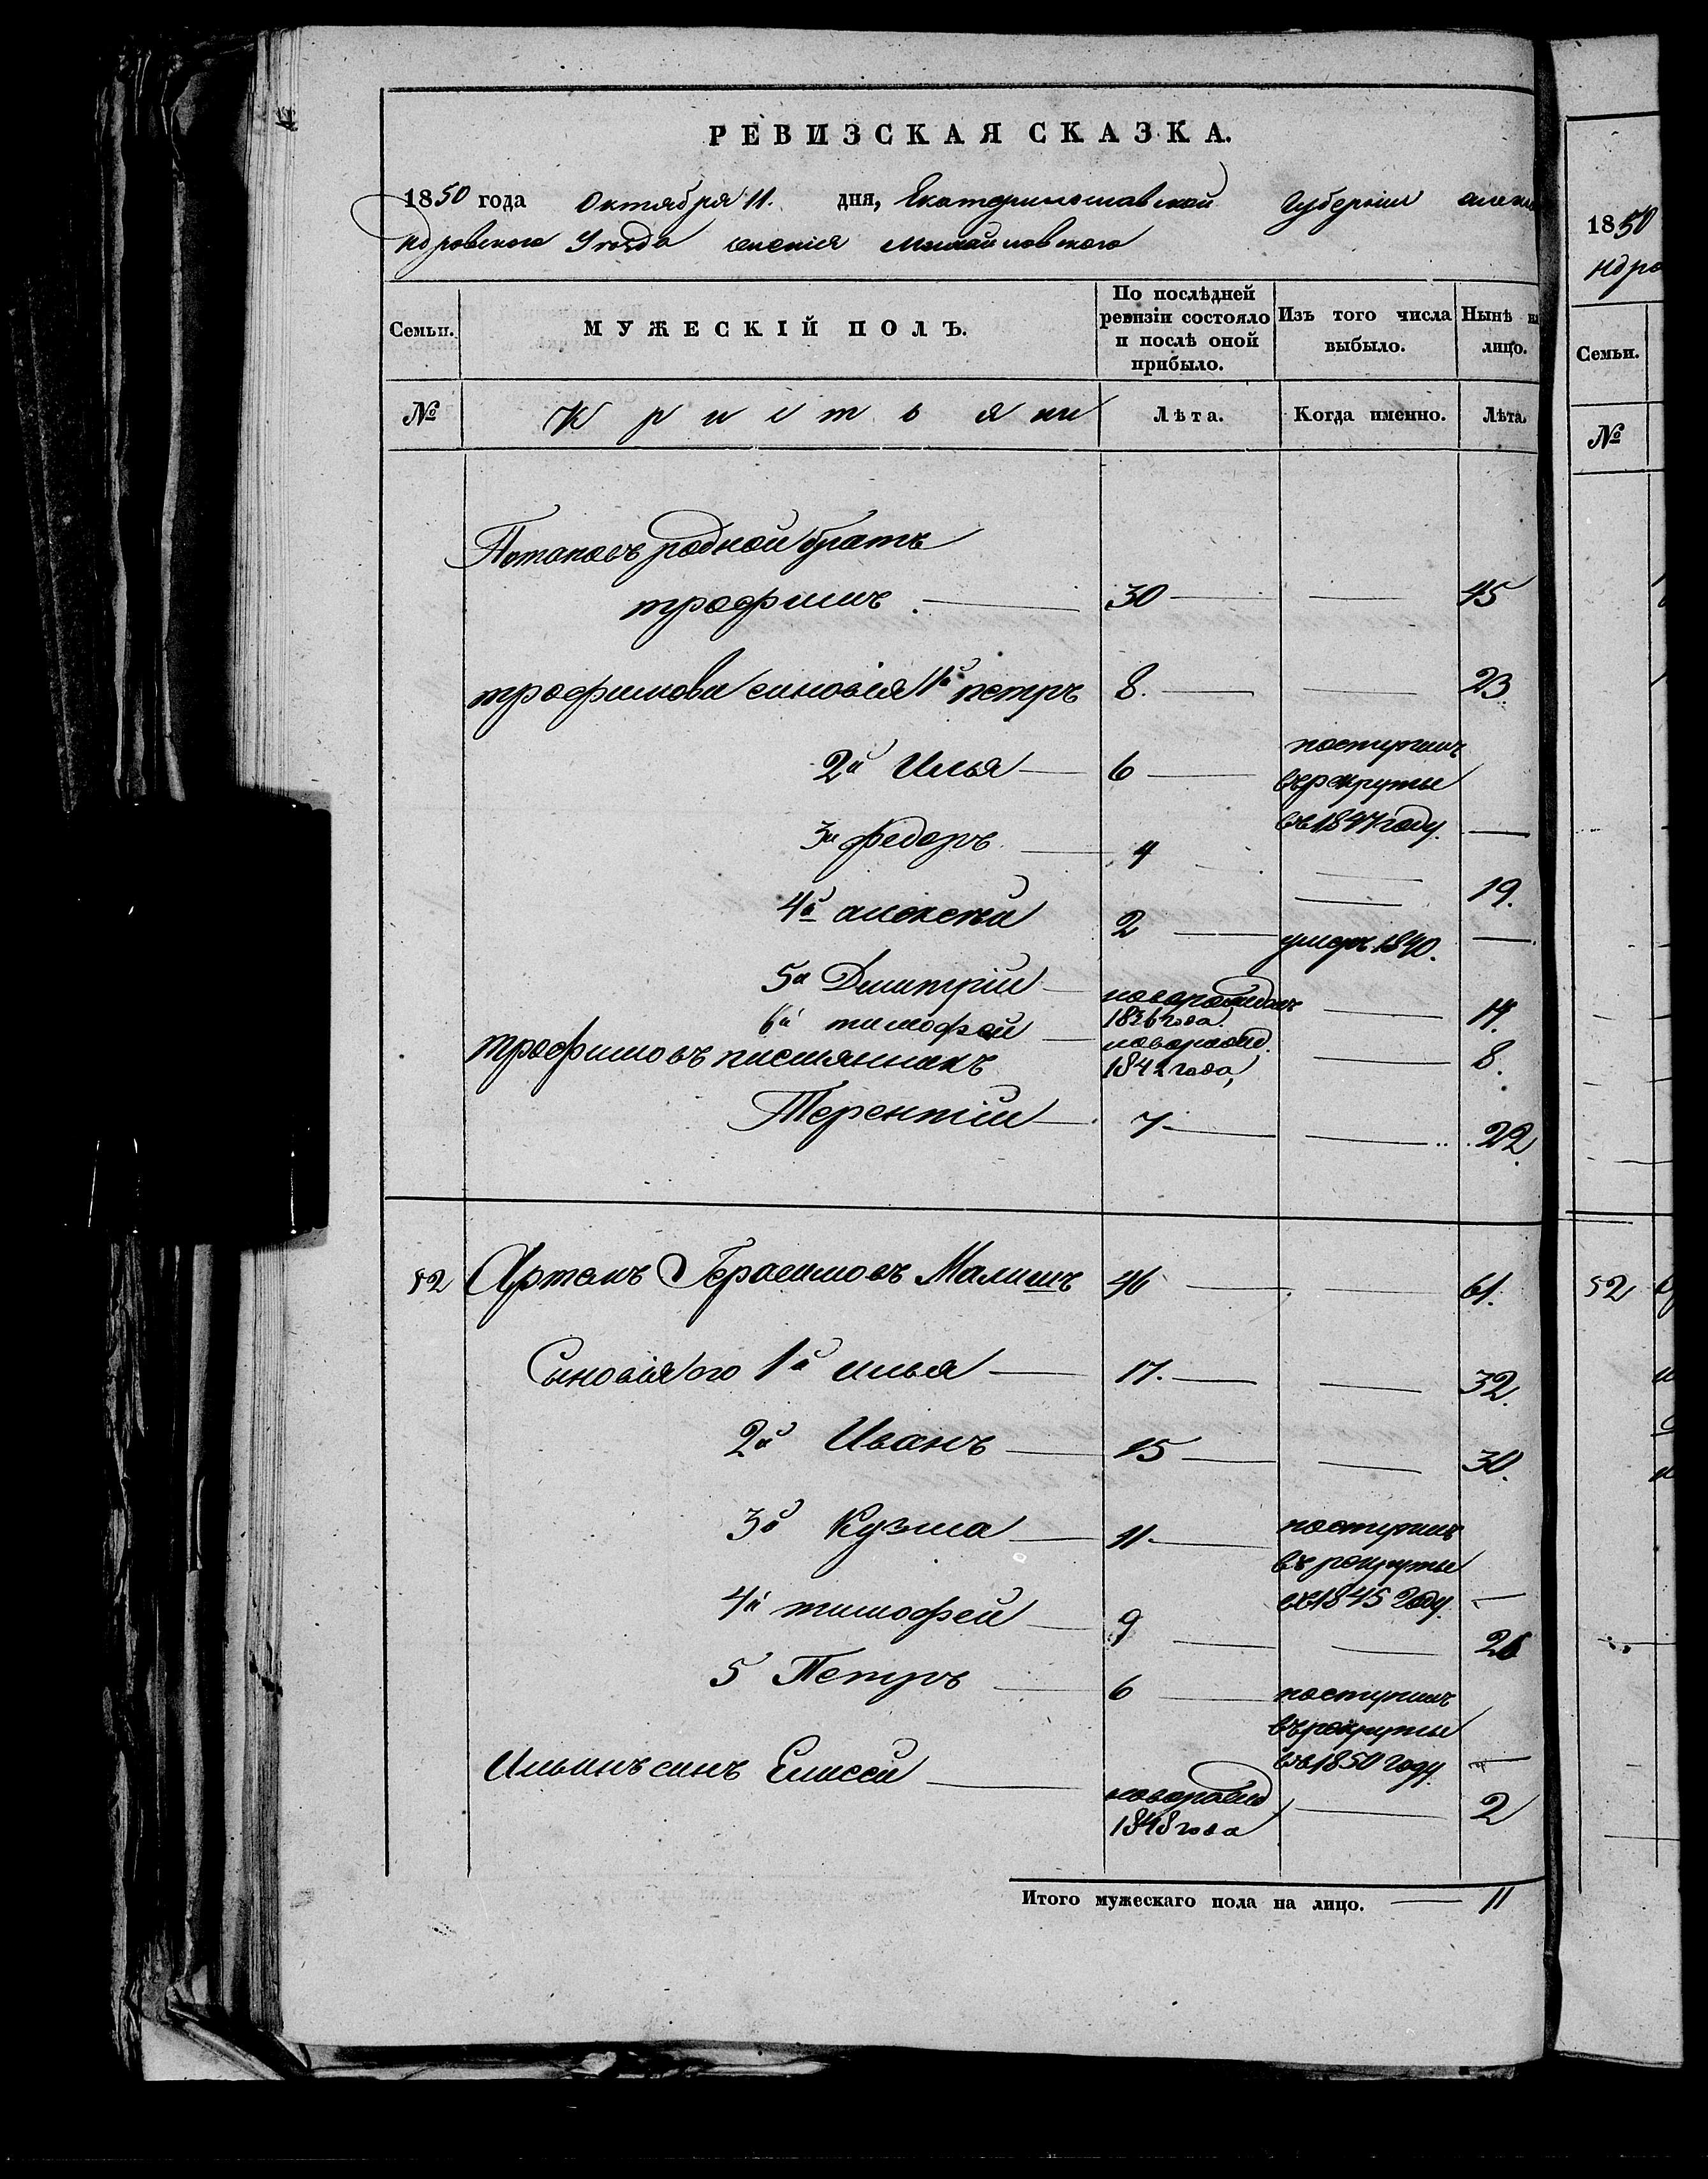 РЕВИЗСКАЯ СКАЗКА.
1850 года Октября 11. дня, Екатеринославской Губернии алекса
ндровского Уезда селения Михайловского
Семьи. МУЖЕСКІЙ ПОЛЪ. По послѣдней ревизіи состояло и послѣ оной прибыло. Изъ того числа выбыло. Нынѣ на лицо.
№ Кристьяни Лѣта. Когда именно. Лѣта.
Потаповъ родной братъ
трофимъ. 30 45
трофимови синовія 1й петръ 8. 23.
2й Илья 6 поступилъ
въ рекруты
въ 1847 году.
3й федоръ 4 19.
4й алексей 2 умеръ 1840.
5й Дмитрій новорожденъ
1836 года. 14.
6й тимофей новорожд.
1842 года, 8.
Трофимовъ писмянникъ
Терентій 7 22.
52 Артемъ Герасимовъ Малишъ 46 61.
Сыновія его 1й илья 17. 32.
2й Иванъ 15 30.
3й Кузма 11 поступилъ
въ рекруты
въ 1845 году
4й тимофей 9 26
5 Петръ 6 поступилъ
въ рекруты
въ 1850 году.
Ильинъ синъ Елисей новорожд
1848 года 2
Итого мужескаго пола на лицо. 11
1850
ндро
Семьи.
№
52